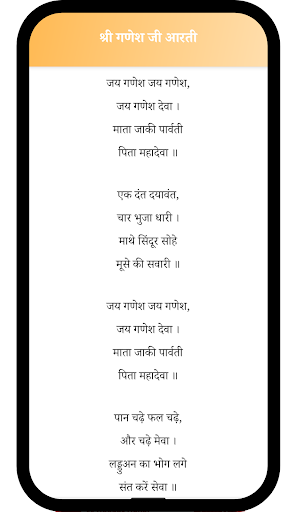 श्री गणेश जी आरती
जय गणेश जय गणेश,
जय गणेश देवा ।
माता जाकी पार्वती
पिता महादेवा ॥
एक दंत दयावंत,
चार भुजा धारी ।
माथे सिंदूर सोहे
मूसे की सवारी ॥
जय गणेश जय गणेश,
जय गणेश देवा ।
माता जाकी पार्वती
पिता महादेवा ॥
पान चढ़े फल चढ़े,
और चढ़े मेवा ।
लड्डुअन का भोग लगे
संत करें सेवा ॥